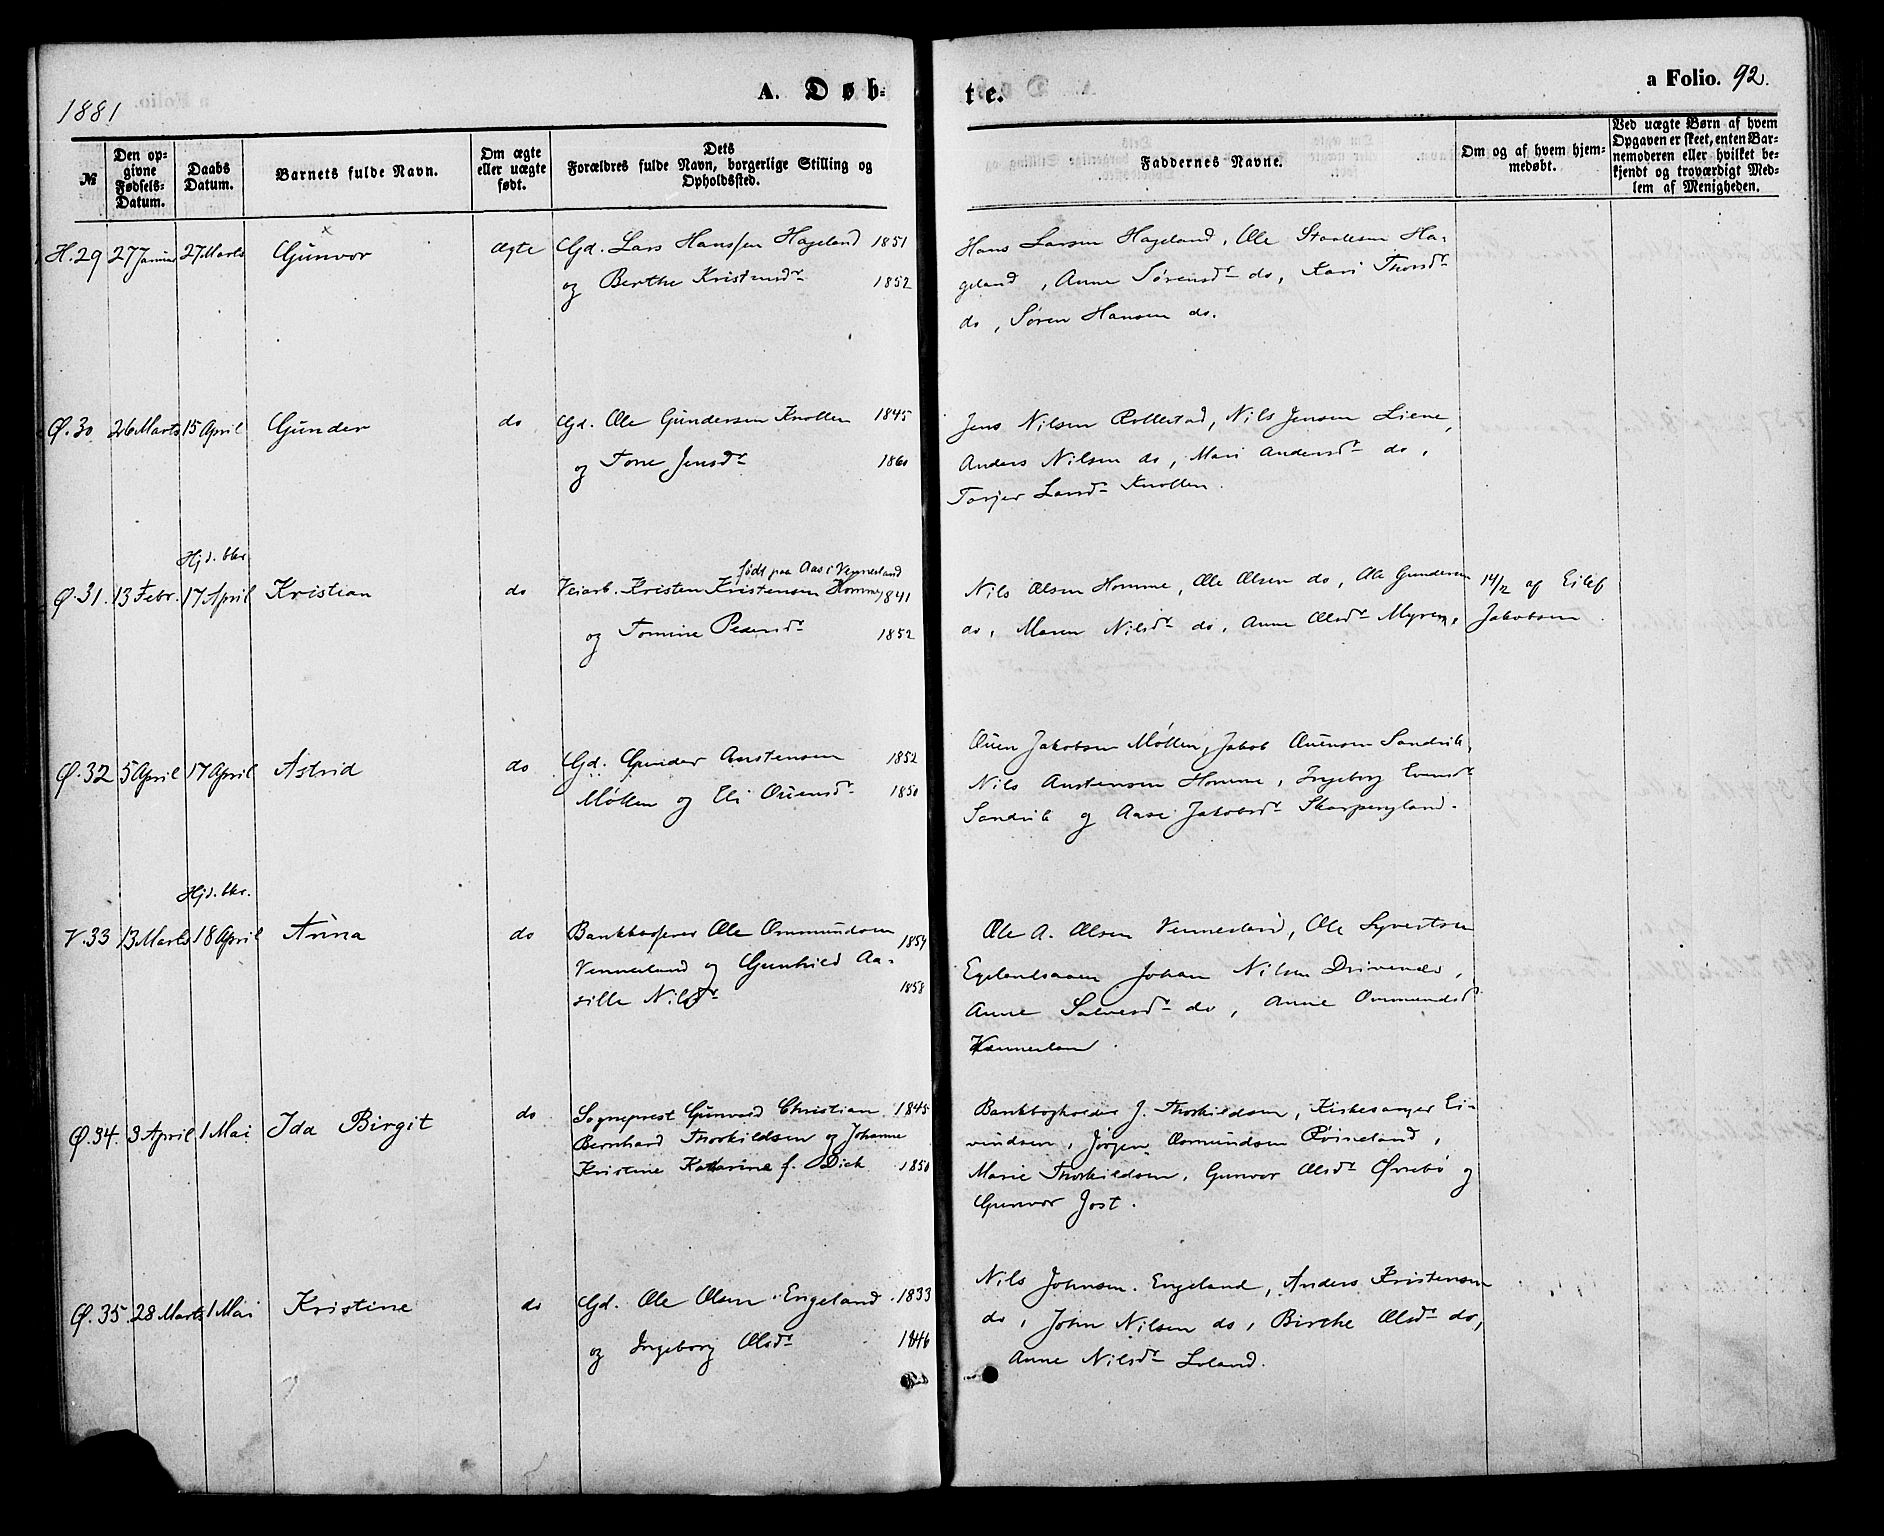 1881
A. Døb-
te.
a Folio. 92.
№
Den op-
givne
Fødsels-
Datum.
Daabs
Datum.
Barnets fulde Navn.
Om ægte
eller uægte
født.
Dets
Forældres fulde Navn, borgerlige Stilling og
Opholdssted.
Faddernes Navne.
Om og af hvem hjem-
medøbt.
Ved uægte Børn af hvem
Opgaven er skeet, enten Bar-
nemoderen eller hvilket be-
kjendt og troværdigt Med-
lem af Menigheden.
x
H.29 27 Januar 27 Marts Gunvor ægte Gd. Lars Hanssen Hageland 1851
og Berthe Kristensdr 1852
Hans Larsen Hageland, Ole Staalesen Ha-
geland, Anne Sørensdr do, Kari Thorsdr
do, Søren Hansen do.
Ø.30 26 Marts 15 April Gunder do Gd. Ole Gundersen Knollen 1845
og Tone Jensdr 1860
Jens Nilsen Rollestad, Nils Jensen Liene,
Anders Nilsen do, Mari Andersdr do,
Torjer Larsd Knollen.
Hjd. bkr.
født paa Aas i Vennesland
Ø.31. 13 Febr. 17 April Kristian do Veiarb. Kristen Kristensen Homme 1841
og Tomine Pedersdr 1852
Nils Olsen Homme, Ole Olsen do, Ole Gundersen
do, Maren Nilsdr do, Anne Olsdr Myren,
14/2 af Eilef
Jakobsen.
Ø.32 5 April 17 April Astrid do Gd. Gunder Anstensen 1852
Møllen og Eli Ouensdr 1850
Ouen Jakobsen Møllen, Jakob Ouensen Sandrik,
Nils Anstensen Homme, Ingeborg Evensdr
Sandrik og Aase Jakobsdr Skarpengland.
Hjd. bkr.
V.33 13 Marts 18 April Anna do Bankbasserer Ole Ommundsen 1854
Vennesland og Gunhild Aa-
silla Nilsdr 1858
Ole A. Olsen Vennesland, Ole Syvertsen
Egelandsaaen Johan Nilsen Drivenæs,
Anne Salvesdr do, Anne Ommundsd
Vennerlan.
Ø.34. 3 April 1 Mai Ida Birgit do Sogneprest Gunvald Christian 1845
Bernhard Thorkildsen og Johanne
Kristine Katharine f. Dick 1850
Bankbogholder J. Thorkildsen, Kirkesanger Ei-
vindsen, Jørgen Osmundsen Røineland,
Marie Thorkildsen, Gunvor Olsdr Øvrebø og
Gunvor Jost.
Ø.35. 28 Marts 1 Mai Kristine do Gd. Ole Olsen Engeland 1833
og Ingeborg Olsdr 1846
Nils Johnsen Engeland, Anders Kristensen
do, John Nilsen do, Birthe Olsdr do,
Anne Nilsdr Loland.